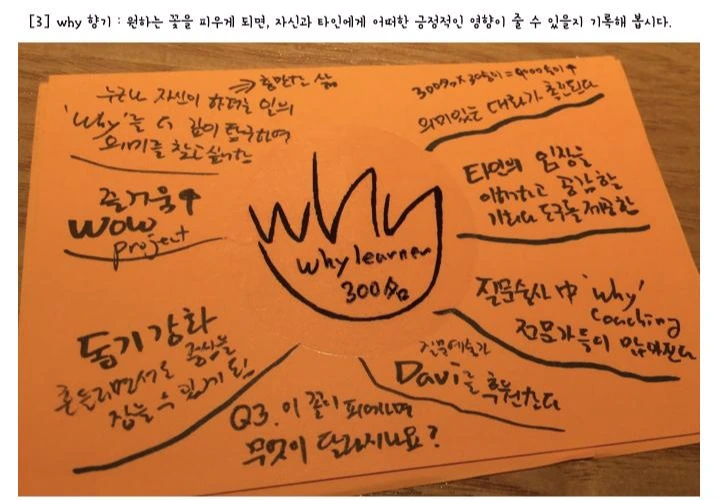 [3] why 향기 : 원하는 꽃을 피우게 되면, 자신과 타인에게 어떠한 긍정적인 영향이 줄 수 있을지 기록해 봅시다.
→ 충만한 삶
누구나 자신이 하려는 일의
'Why'를 더 깊이 탐구하며
의미를 찾고 실천
즐거움↑
WOW
project
동기강화
흔들리면서도 중심을
잡을 수 있게 됨
Why
why learner
300名
300명 x 30송이 = 9,000송이↑
의미있는 대화가 촉진된다
타인의 입장을
이해하고 공감할
기회나 도구를 제공한
질문술사 中 'why'
Coaching
전문가들이 많아진다
질문예술가
Davi를 후원한다
Q3. 이 꽃이 피게되면
무엇이 달라지나요?